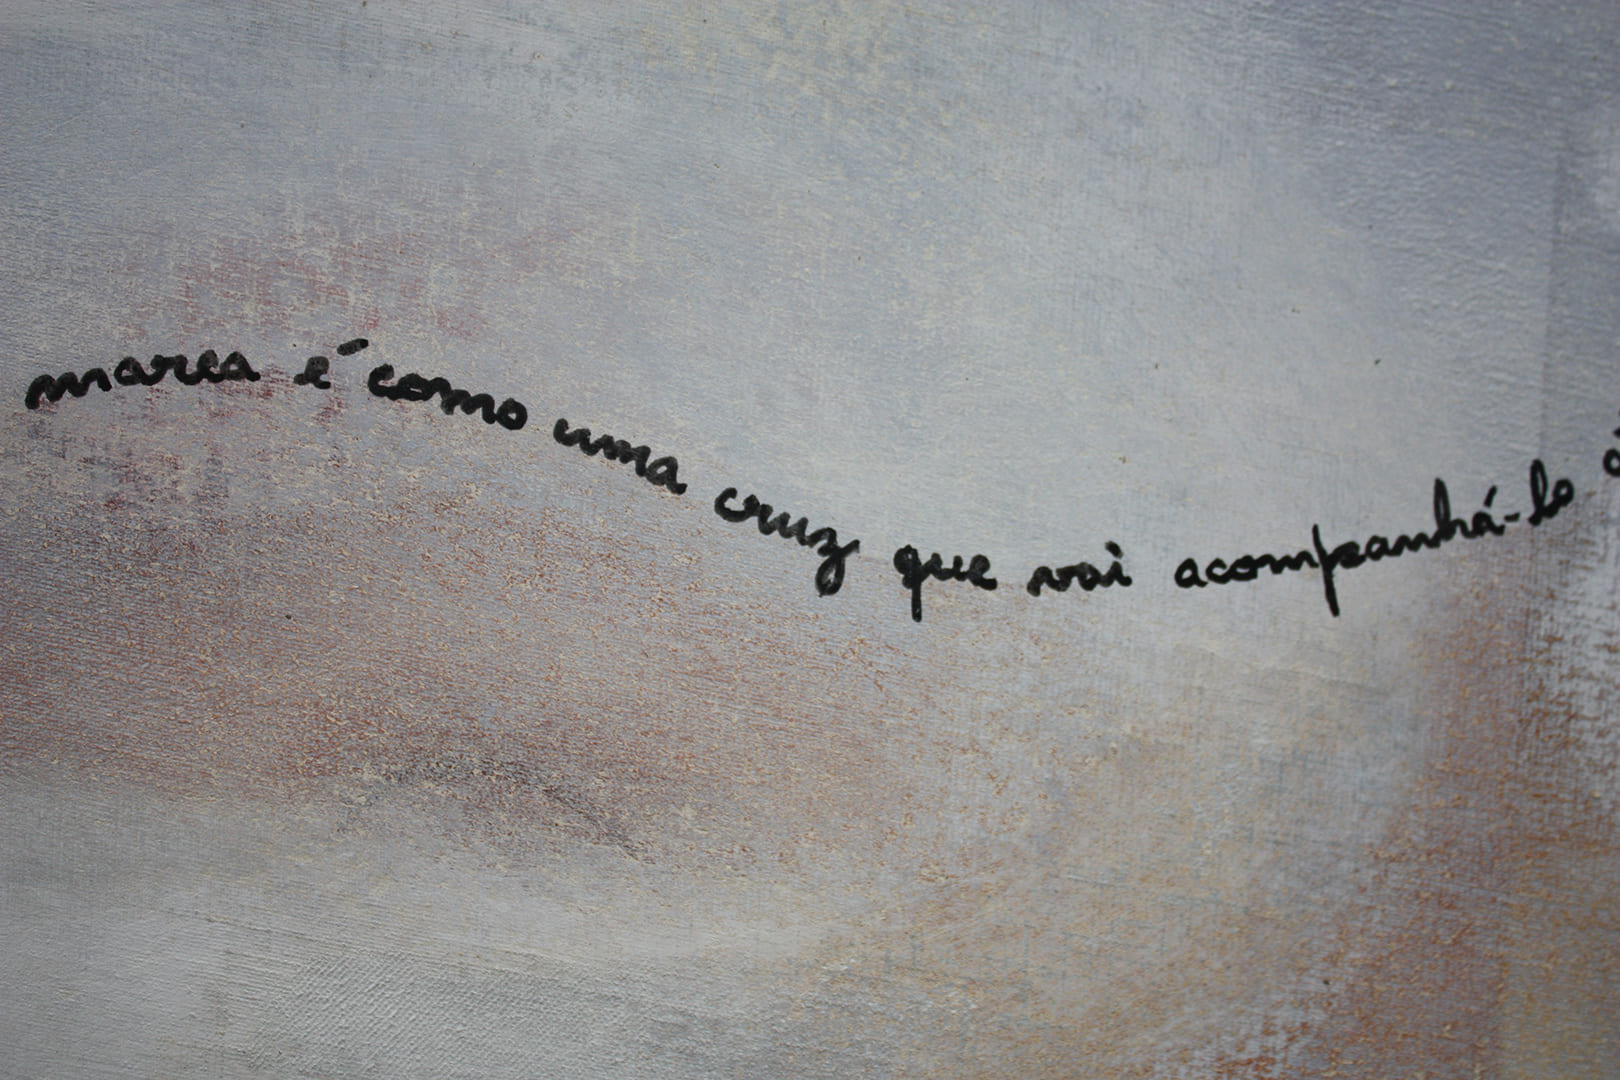 marca é como uma cruz que vai acompanhá-lo